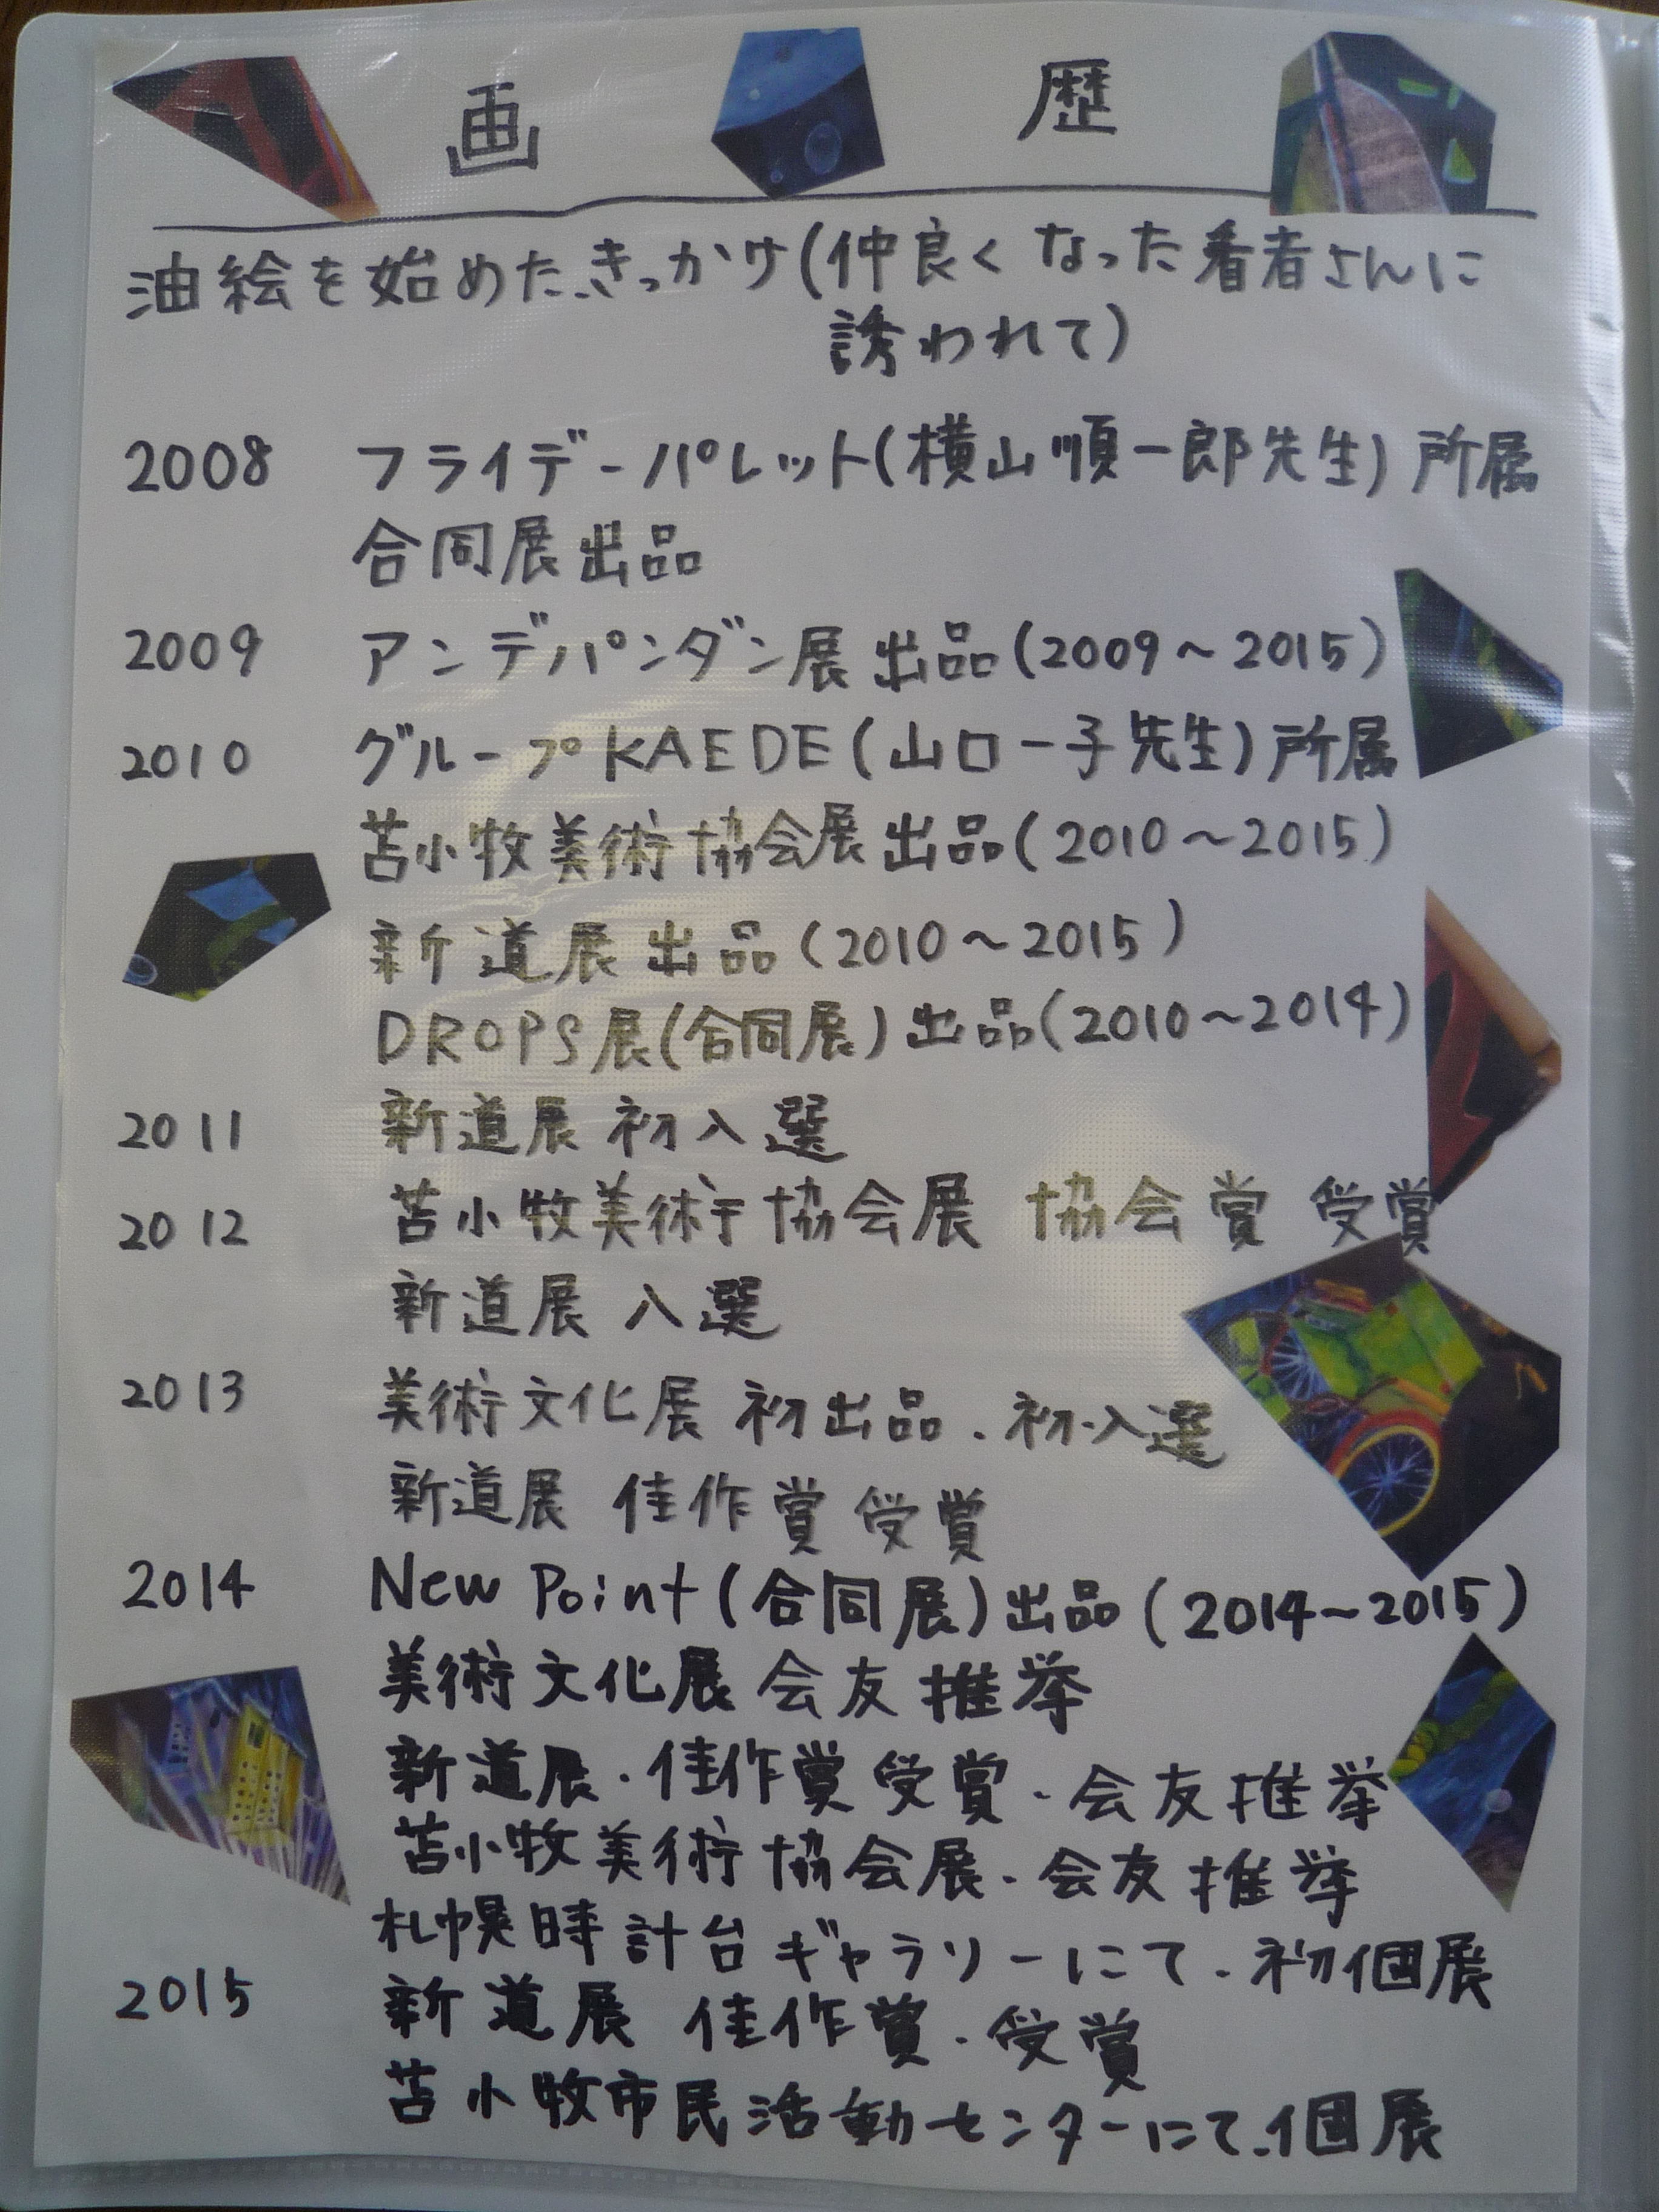 画 歴
油絵を始めたきっかけ(仲良くなった看者さんに
誘われて)
2008 フライデーパレット(横山順一郎先生)所属
合同展出品
2009 アンデパンダン展出品(2009～2015)
2010 グループKAEDE(山口一子先生)所属
苫小牧美術協会展出品(2010～2015)
新道展出品(2010～2015)
DROPS展(合同展)出品(2010～2014)
2011 新道展 初入選
2012 苫小牧美術協会展 協会賞 受賞
新道展 入選
2013 美術文化展 初出品.初入選
新道展 佳作賞 受賞
2014 New Point(合同展)出品(2014～2015)
美術文化展 会友推挙
新道展・佳作賞受賞・会友推挙
苫小牧美術協会展・会友推挙
札幌時計台ギャラリーにて.初個展
2015 新道展 佳作賞・受賞
苫小牧市民活動センターにて.個展